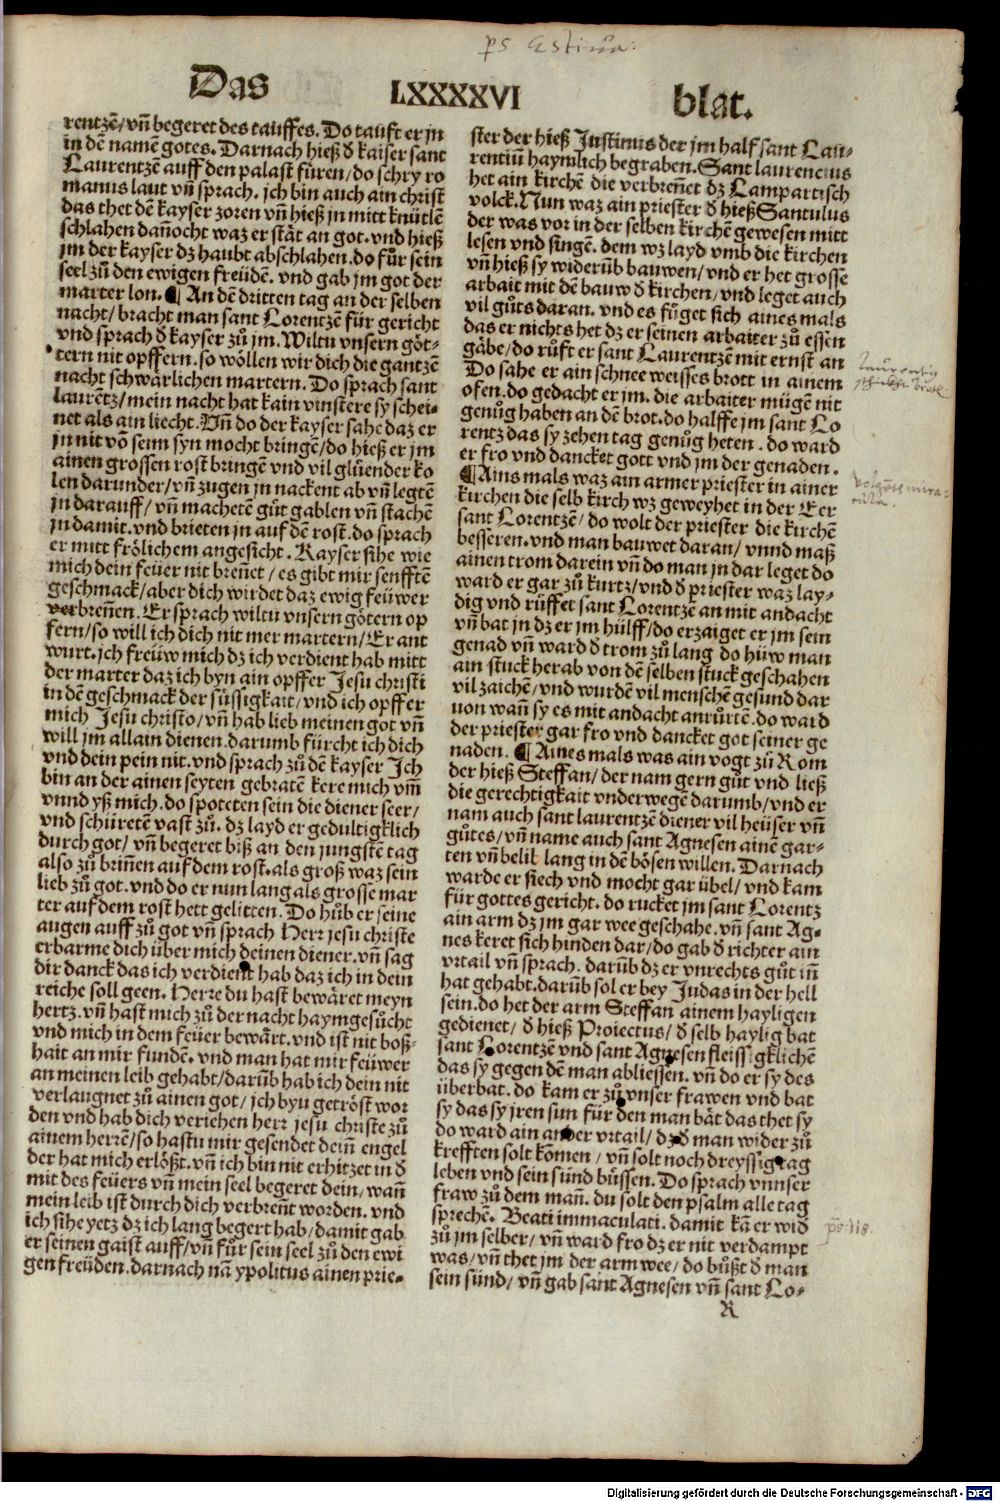 Das LXXXXVI blat.
rentzē/ vn̄ begeret des tauffes. Do tauft er jn
in dē namē gotes. Darnach hieß d̕ kaiser sant
Laurentzē auff den palast fu̇ren/ do schry ro
manus laut vn̄ sprach. ich bin auch ain christ
das thet dē kayser zoren vn̄ hieß jn mitt knütlē
schlahen dan̄ocht waz er stät an got. vnd hieß
jm der kayser dz haubt abschlahen. do fůr sein
seel zů den ewigen freüdē. vnd gab jm got der
marter lon. ¶ An dē dritten tag an der selben
nacht/ bracht man sant Lorentzē für gericht
vnd sprach d̕ kayser zů jm. Wiltu vnsern göt-
tern nit opffern. so wöllen wir dich die gantzē
nacht schwärlichen martern. Do sprach sant
laurētz/ mein nacht hat kain vinstere sy schei-
net als ain liecht. Vn̄ do der kayser sahe daz er
jn nit vō seim syn mocht bringē/ do hieß er im
ainen grossen rost bringē vnd vil glüender ko
len darunder/ vn̄ zugen jn nackent ab vn̄ legtē
jn darauff/ vn̄ machetē gůt gablen vn̄ stachē
jn damit. vnd brieten jn auf dē rost. do sprach
er mitt frölichem angesicht. Kayser sihe wie
mich dein feüer nit bren̄et/ es gibt mir senfftē
geschmack/ aber dich wirdet daz ewig feüwer
verbren̄en. Er sprach wiltu vnsern götern op
fern/ so will ich dich nit mer martern/ Er ant
wurt. ich freüw mich dz ich verdient hab mitt
der marter daz ich byn ain opffer Jesu christi
in dē geschmack der süssigkait/ vnd ich opffer
mich Jesu christo/ vn̄ hab lieb meinen got vn̄
will jm allain dienen. darumb fürcht ich dich
vnd dein pein nit. vnd sprach zů dē kayser Ich
bin an der ainen seyten gebratē kere mich vm̄
vnnd yß mich. do spoteten sein die diener seer/
vnd schüretē vast zů. dz layd er gedultigklich
durch got/ vn̄ begeret biß an den jungstē tag
also zů brin̄en auf dem rost. als groß waz sein
lieb zů got. vnd do er nun lang als grosse mar
ter auf dem rost hett gelitten. Do hůb er seine
augen auff zů got vn̄ sprach Herr jesu christe
erbarme dich über mich deinen diener. vn̄ sag
dir danck das ich verdient hab daz ich in dein
reiche soll geen. Herre du hast bewäret meyn
hertz. vn̄ hast mich zů der nacht haymgesůcht
vnd mich in dem feüer bewärt. vnd ist nit boß-
hait an mir fundē. vnd man hat mir feüwer
an meinen leib gehabt/ darūb hab ich dein nit
verlaugnet zů ainen got/ ich byn getröst wor
den vnd hab dich veriehen herr jesu christe zů
ainem herrē/ so hastu mir gesendet dein̄ engel
der hat mich erlößt. vn̄ ich bin nit erhitzet in d̕
mit des feüers vn̄ mein seel begeret dein/ wan̄
mein leib ist durch dich verbrent worden. vnd
ich sihe yetz dz ich lang begert hab/ damit gab
er seinen gaist auff/ vn̄ fůr sein seel zů den ewi
gen freüden. darnach nā ypolitus ainen prie-
ster der hieß Justinus der jm half sant Lau-
rentiū haymlich begraben. Sant laurencius
het ain kirchē die verbren̄et dz Lampartisch
volck. Nun waz ain priester d̕ hieß Santulus
der was vor in der selben kirchē gewesen mitt
lesen vnd singē. dem wz layd vmb die kirchen
vn̄ hieß sy widerūb bauwen/ vnd er het grosse
arbait mit dē bauw d̕ kirchen/ vnd leget auch
vil gůts daran. vnd es füget sich aines mals
das er nichts het dz er seinen arbaiter zů essen
gäbe/ do růft er sant Laurentzē mit ernst an
Do sahe er ain schnee weisses brott in ainem
ofen. do gedacht er jm. die arbaiter mügē nit
genůg haben an dē brot. do halffe jm sant Lo
rentz das sy zehen tag genůg heten. do ward
er fro vnd dancket gott vnd jm der genaden.
¶ Ains mals waz ain armer priester in ainer
kirchen die selb kirch wz geweyhet in der Eer
sant Lorentzē/ do wolt der priester die kirchē
besseren. vnd man bauwet daran/ vnnd maß
ainen trom darein vn̄ do man jn dar leget do
ward er gar zů kurtz/ vnd d̕ priester waz lay-
dig vnd rüffet sant Lorentzē an mit andacht
vn̄ bat jn dz er jm hülff/ do erzaiget er jm sein
genad vn̄ ward d̕ trom zů lang do hüw man
ain stuck herab von dē selben stuck geschahen
vil zaichē/ vnd wurdē vil menschē gesund dar
uon wan̄ sy es mit andacht anrürtē. do ward
der priester gar fro vnd dancket got seiner ge
naden. ¶ Aines mals was ain vogt zů Rom
der hieß Steffan/ der nam gern gůt vnd ließ
die gerechtigkait vnderwegē darumb/ vnd er
nam auch sant laurentzē diener vil heüser vn̄
gůtes/ vn̄ name auch sant Agnesen ainē gar-
ten vn̄ belib lang in dē bösen willen. Darnach
warde er siech vnd mocht gar übel/ vnd kam
für gottes gericht. do rucket jm sant Lorentz
ain arm dz jm gar wee geschahe. vn̄ sant Ag-
nes keret sich hinden dar/ do gab d̕ richter ain
vrtail vn̄ sprach. darūb dz er vnrechts gůt in̄
hat gehabt. darūb sol er bey Judas in der hell
sein. do het der arm Steffan ainem hayligen
gedienet/ d̕ hieß Proiectus/ d̕ selb haylig bat
sant Lorentzē vnd sant Agnesen fleissigklichē
das sy gegen dē man abliessen. vn̄ do er sy des
überbat. do kam er zů vnser frawen vnd bat
sy das sy jren sun für den man bät das thet sy
do ward ain ander vrtail/ dz d̕ man wider zů
krefften solt kōmen/ vn̄ solt noch dreyssig tag
leben vnd sein sünd büssen. Do sprach vnnser
fraw zů dem man̄. du solt den psalm alle tag
sprechē. Beati immaculati. damit kā er wid̕
zů jm selber/ vn̄ ward fro dz er nit verdampt
was/ vn̄ thet jm der arm wee/ do bůßt d̕ man
sein sünd/ vn̄ gab sant Agnesen vn̄ sant Lo-
R
ps. 118.
Digitalisierung gefördert durch die Deutsche Forschungsgemeinschaft - DFG